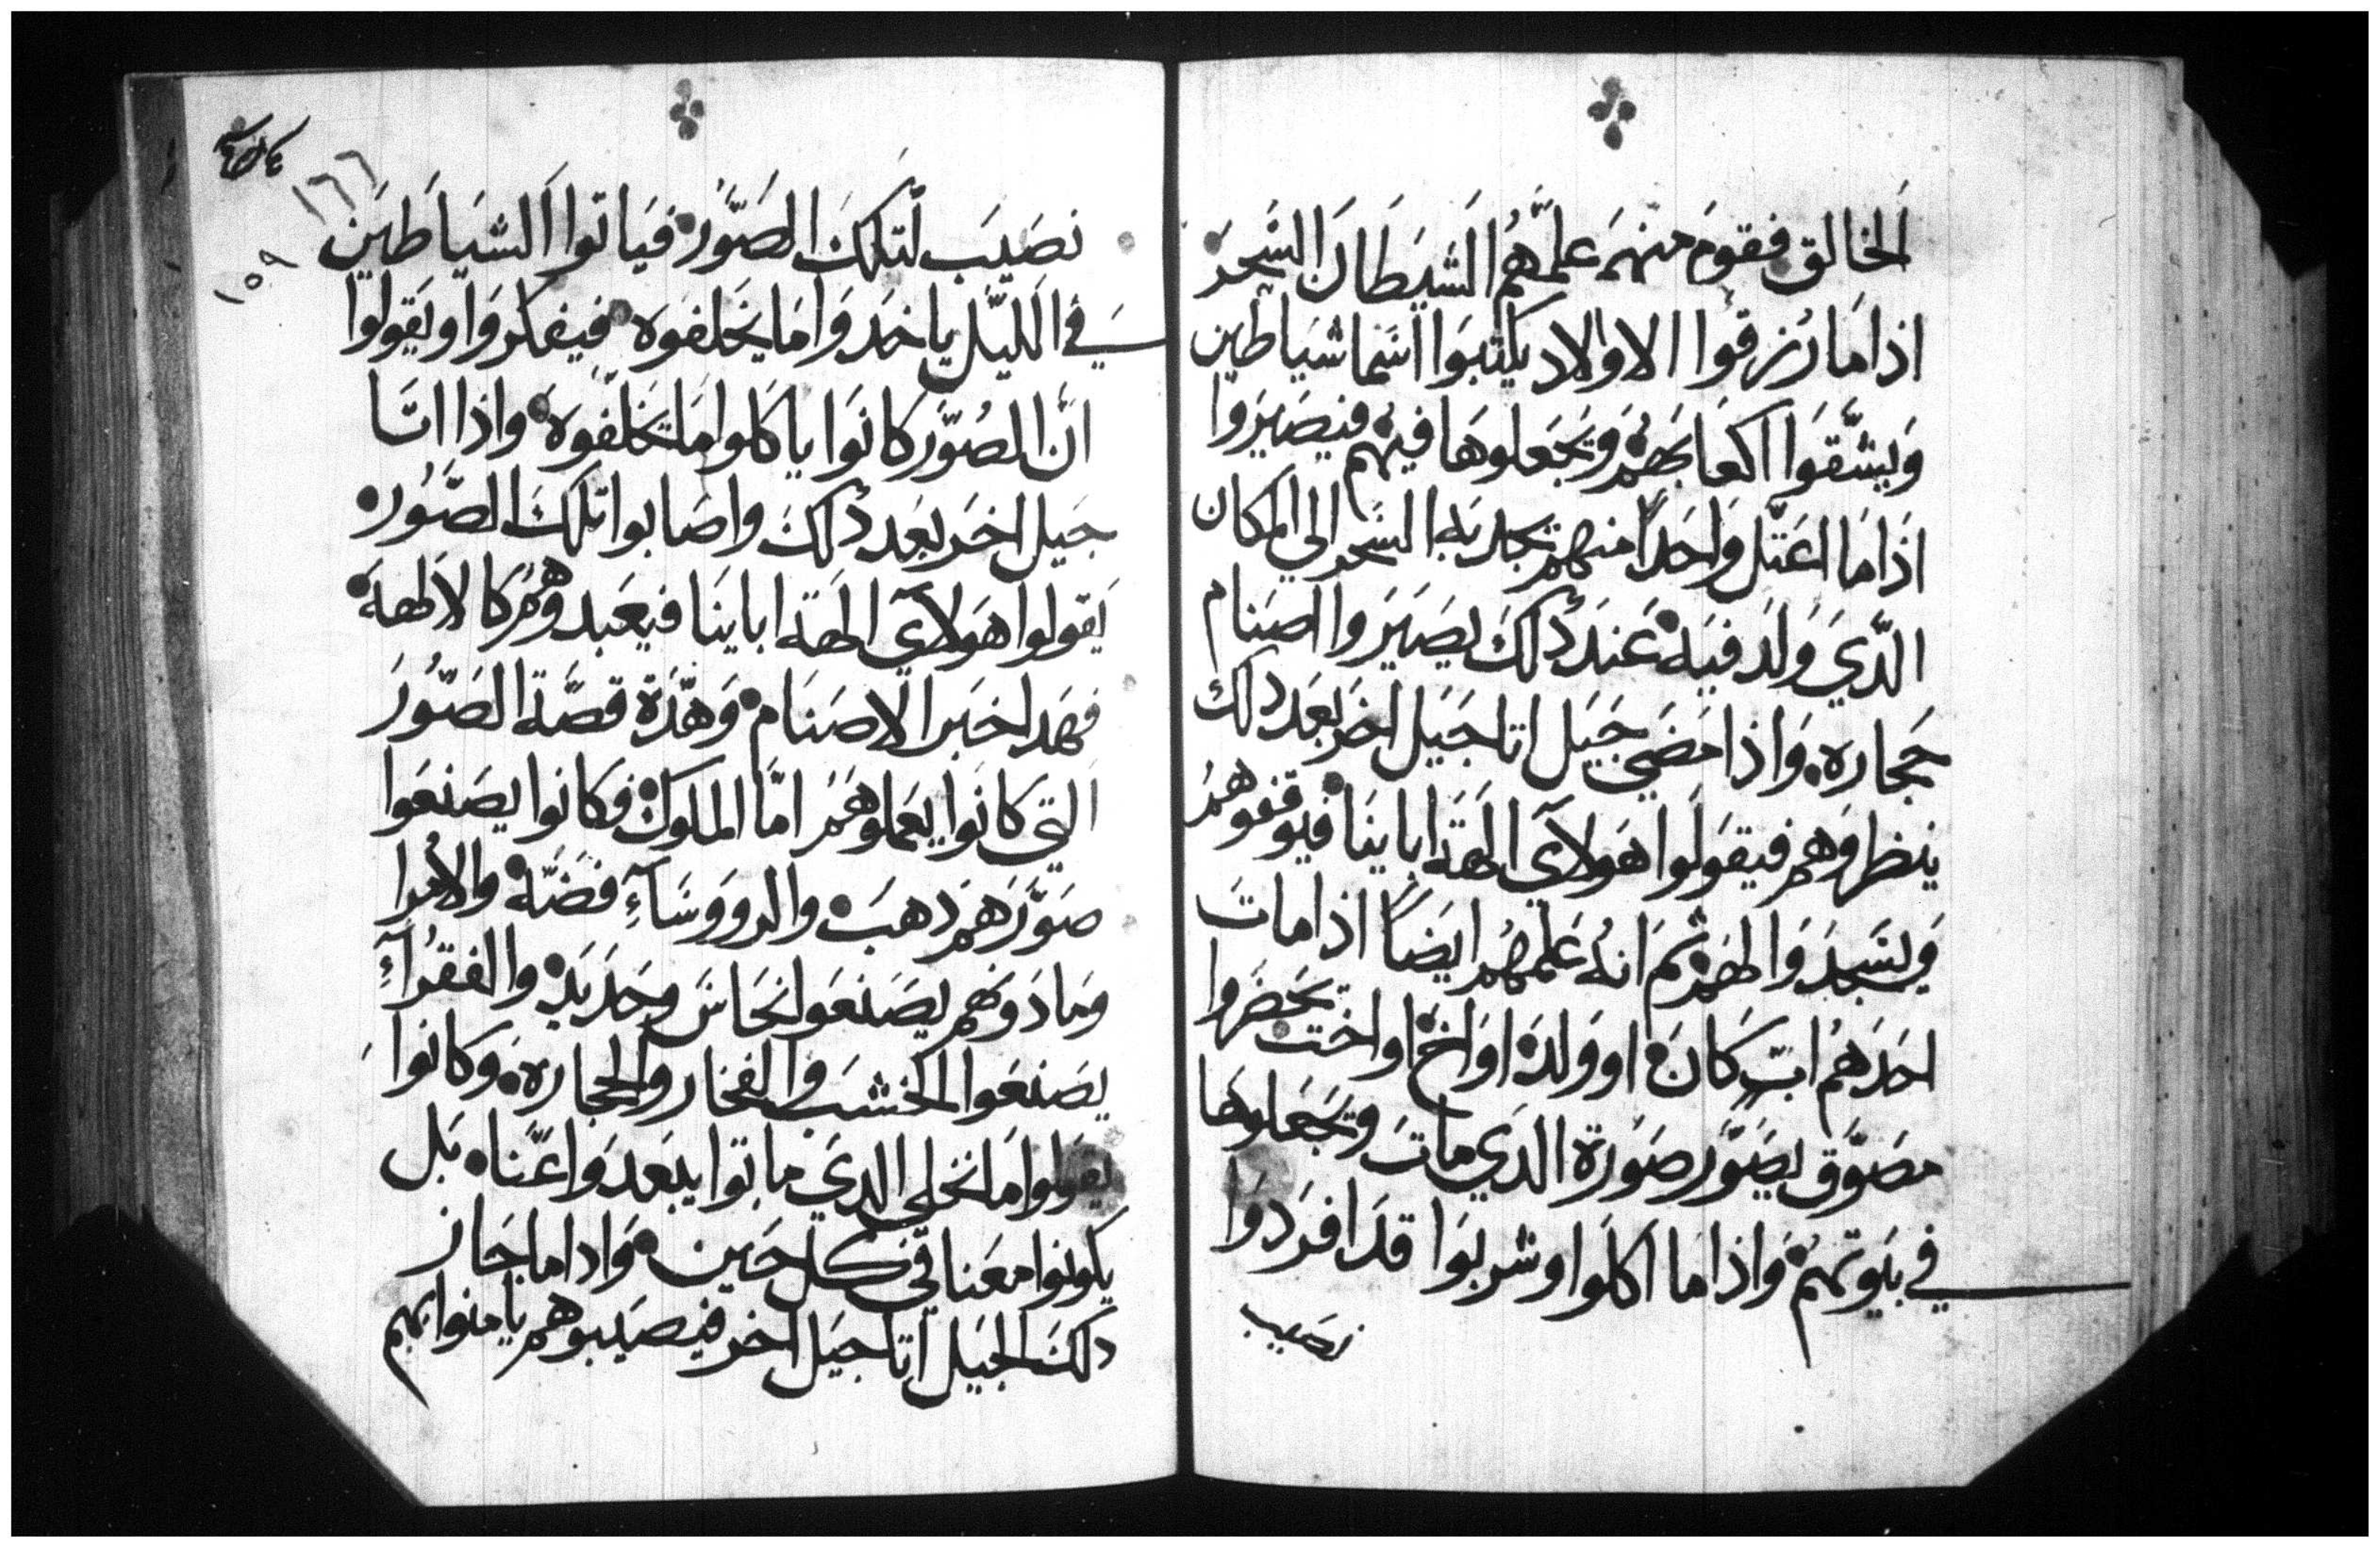 الخالق فقوم منهم علمهم الشيطان السحر
اذا ما رزقوا الاولاد يكتبوا اسما شياطين
ويشقوا اكعابهم ويجعلوها فيهم فيصيروا
اذا ما اعتل واحدا منهم تجد به السحر الي المكان
الدي ولد فيه عند دلك يصيروا اصنام
حجاره واذا مضي جيل اتا جيل اخر بعد دلك
ينظروهم فيقولوا هولاي الهة اباينا فيوقفوهم
ويسجدوا لهم ثم انه علمهم ايضا اذا مات
احدهم اب كان او ولده او اخ او اخت يحضروا
مصوق يصور صورة الدي مات ويجعلوها
في بيوتهم واذا ما اكلوا وشربوا قد افردوا
نصيب
نصيب لتلك الصور فياتوا الشياطين
في الليل ياخدوا ما يخلفوه فيفكروا ويقولوا
ان الصور كانوا ياكلوا ما تخلفوه واذا اتا
جيل اخر بعد دلك واصابوا تلك الصور
يقولوا هولاي الهة اباينا فيعبدوهم كالالهة
فهدا خبر الاصنام وهذة قصة الصور
التي كانوا يعملوهم اما الملوك فكانوا يصنعوا
صورهم دهب والرووسآء فضة والامرا
وما دونهم يصنعوا نحاس وحديد والفقرآء
يصنعوا الخشب والفخار والحجاره وكانوا
يقولوا ما نخلي الدي ماتوا يبعدوا عناه بل
يكونوا معنا في كل حين واداما جاز
دلك الجيل اتا جيل اخر فيصيبوهم يامنوا بهم
١٦٦
١٥٩